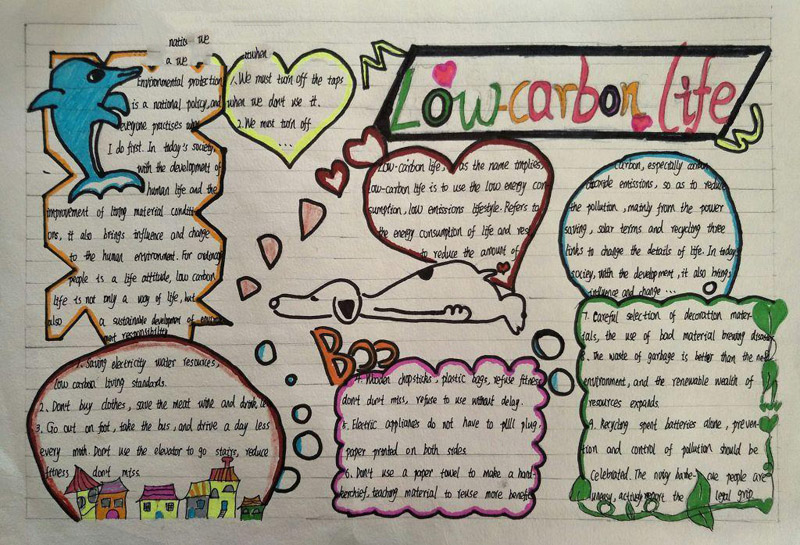 Low-carbon life
natios we
a we
Environmental protection
is a national policy, and
everyone practises
I do first. In today's society
with the development of
human life and the
improvement of living material conditi
ons, it also brings influence and change
to the human environment. For ordenary
people is a life attitude, low carbon
life is not only a way of life, but
also a sustainable development of
responsibility
when
1. We must turn off the taps
when we don't use it.
2. We must turn off
...
Low-carbon life, as the name implies,
low-carbon life is to use the low energy con
sumption, low emissions lifestyle. Refers to
the energy consumption of life and
to reduce the amount of
carbon, especially
dioxide emissions, so as to reduce
the pollution, mainly from the power
saving, solar terms and recycling three
links to change the details of life. In today
society, with the development, it also brings
influence and change ...
Boo
1. Saving electricity water resources,
low carbon living standards.
2. Don't buy clothes, save the meat wine and drink,
3. Go out on foot, take the bus, and drive a day less
every moth. Don't use the elevator to go stairs, reduce
fitness don't miss.
4. Wooden chopsticks, plastic bags, refuse fitness
don't don't miss, refuse to use without delay.
5. Electric appliances do not have to plll plug,
paper printed on both sides
6. Don't use a paper towel to make a hand-
kerchief, teaching material to reuse more
7. Careful selection of decoration mater-
tals, the use of bad material brewing
8. The waste of garbage is better than the
environment, and the renewable wealth of
resources expands
9. Recycling spent batteries alone, preven-
tion and control of pollution should be
Celebrated. The are people are
the legal